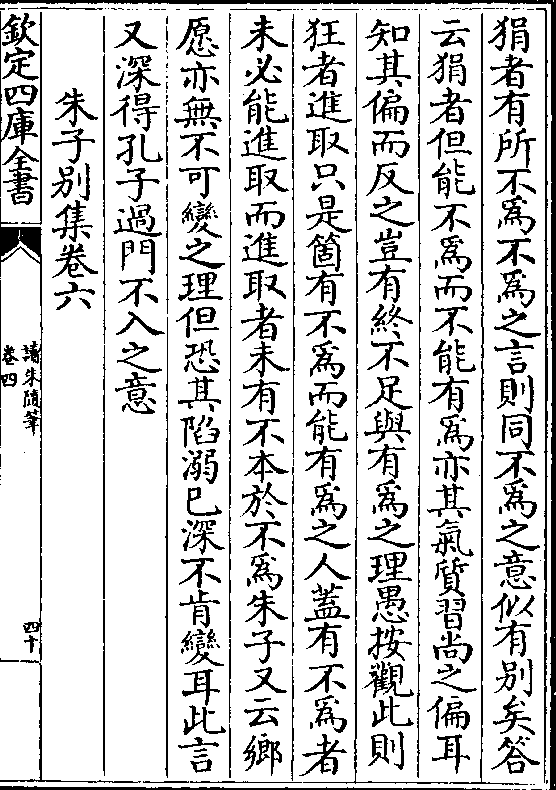 狷者有所不為不為之言則同不為之意似有別矣答
云狷者但能不為而不能有為亦其氣質習尚之偏耳
知其偏而反之豈有終不足與有為之理愚按觀此則
狂者進取只是箇有不為而能有為之人蓋有不為者
未必能進取而進取者未有不本於不為朱子又云鄉
愿亦無不可變之理但恐其陷溺已深不肯變耳此言
又深得孔子過門不入之意
朱子別集卷六
欽定四庫全書
讀朱隨筆
卷四
四十